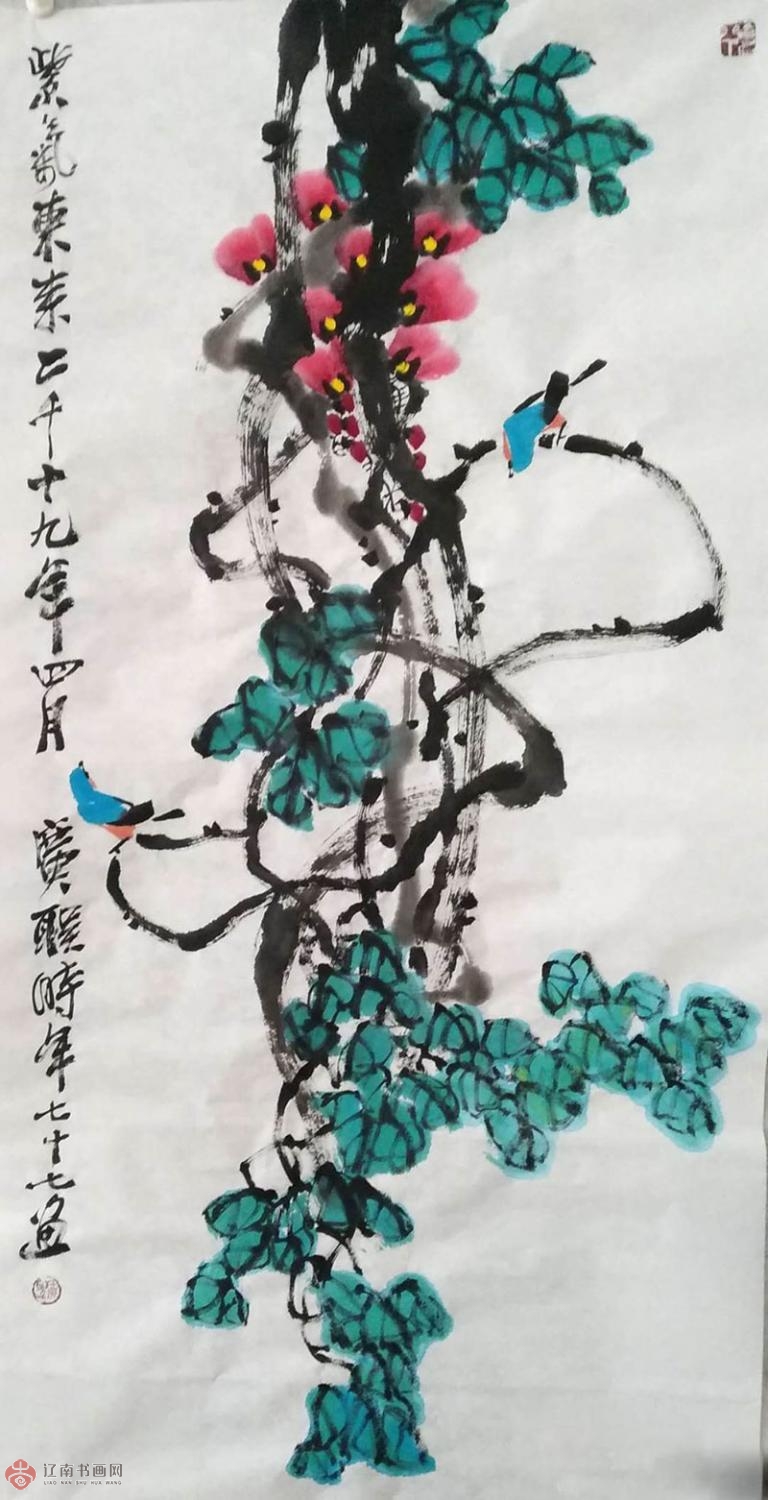 紫气東来二千十九年四月 廣聚時年七十七画
辽南书画网
LIAO NAN SHU HUA WANG